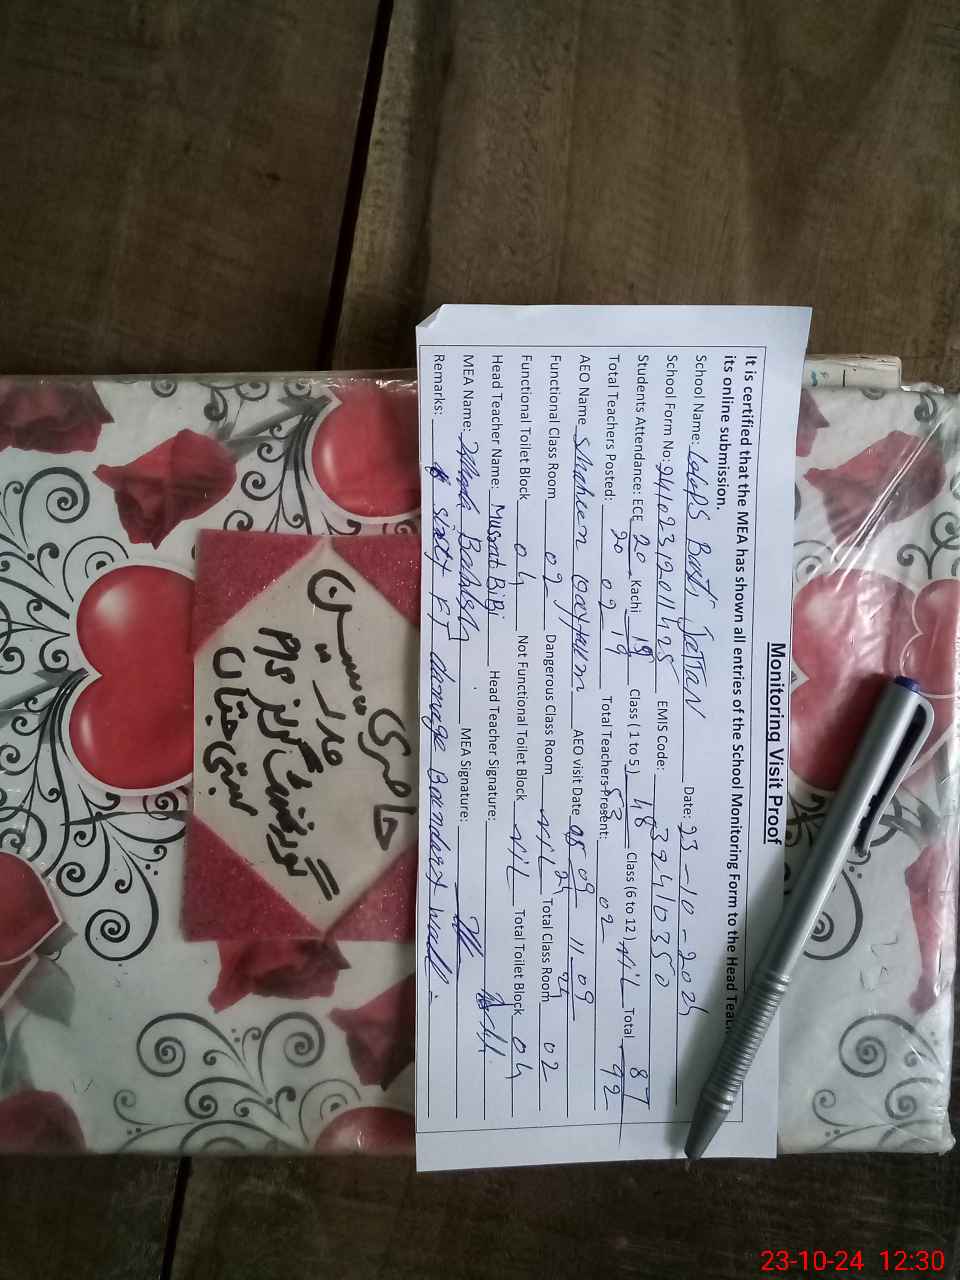 Monitoring Visit Proof
It is certified that the MEA has shown all entries of the School Monitoring Form to the Head Teac
its online submission.
School Name: Basti Jattan Date: 23-10-2024
School Form No: EMIS Code: 32410350
Students Attendance: ECE 20 Kachi 19 Class ( 1 to 5) 48 Class (6 to 12) NIL Total 87
20 19 53 92
Total Teachers Posted: 02 Total Teachers Present: 02
AEO Name Shaheen Qayyum AEO visit Date 05-09 11-09
24 24
Functional Class Room 02 Dangerous Class Room NIL Total Class Room 02
Functional Toilet Block 04 Not Functional Toilet Block NIL Total Toilet Block 04
Head Teacher Name: Mussrat BiBi Head Teacher Signature:
MEA Name: Bakhsh MEA Signature:
Remarks: sixty FT damage Boundery wall :
حاضری
مدارسین
گورنمنٹ گرلز
بستی جتاں
23-10-24 12:30